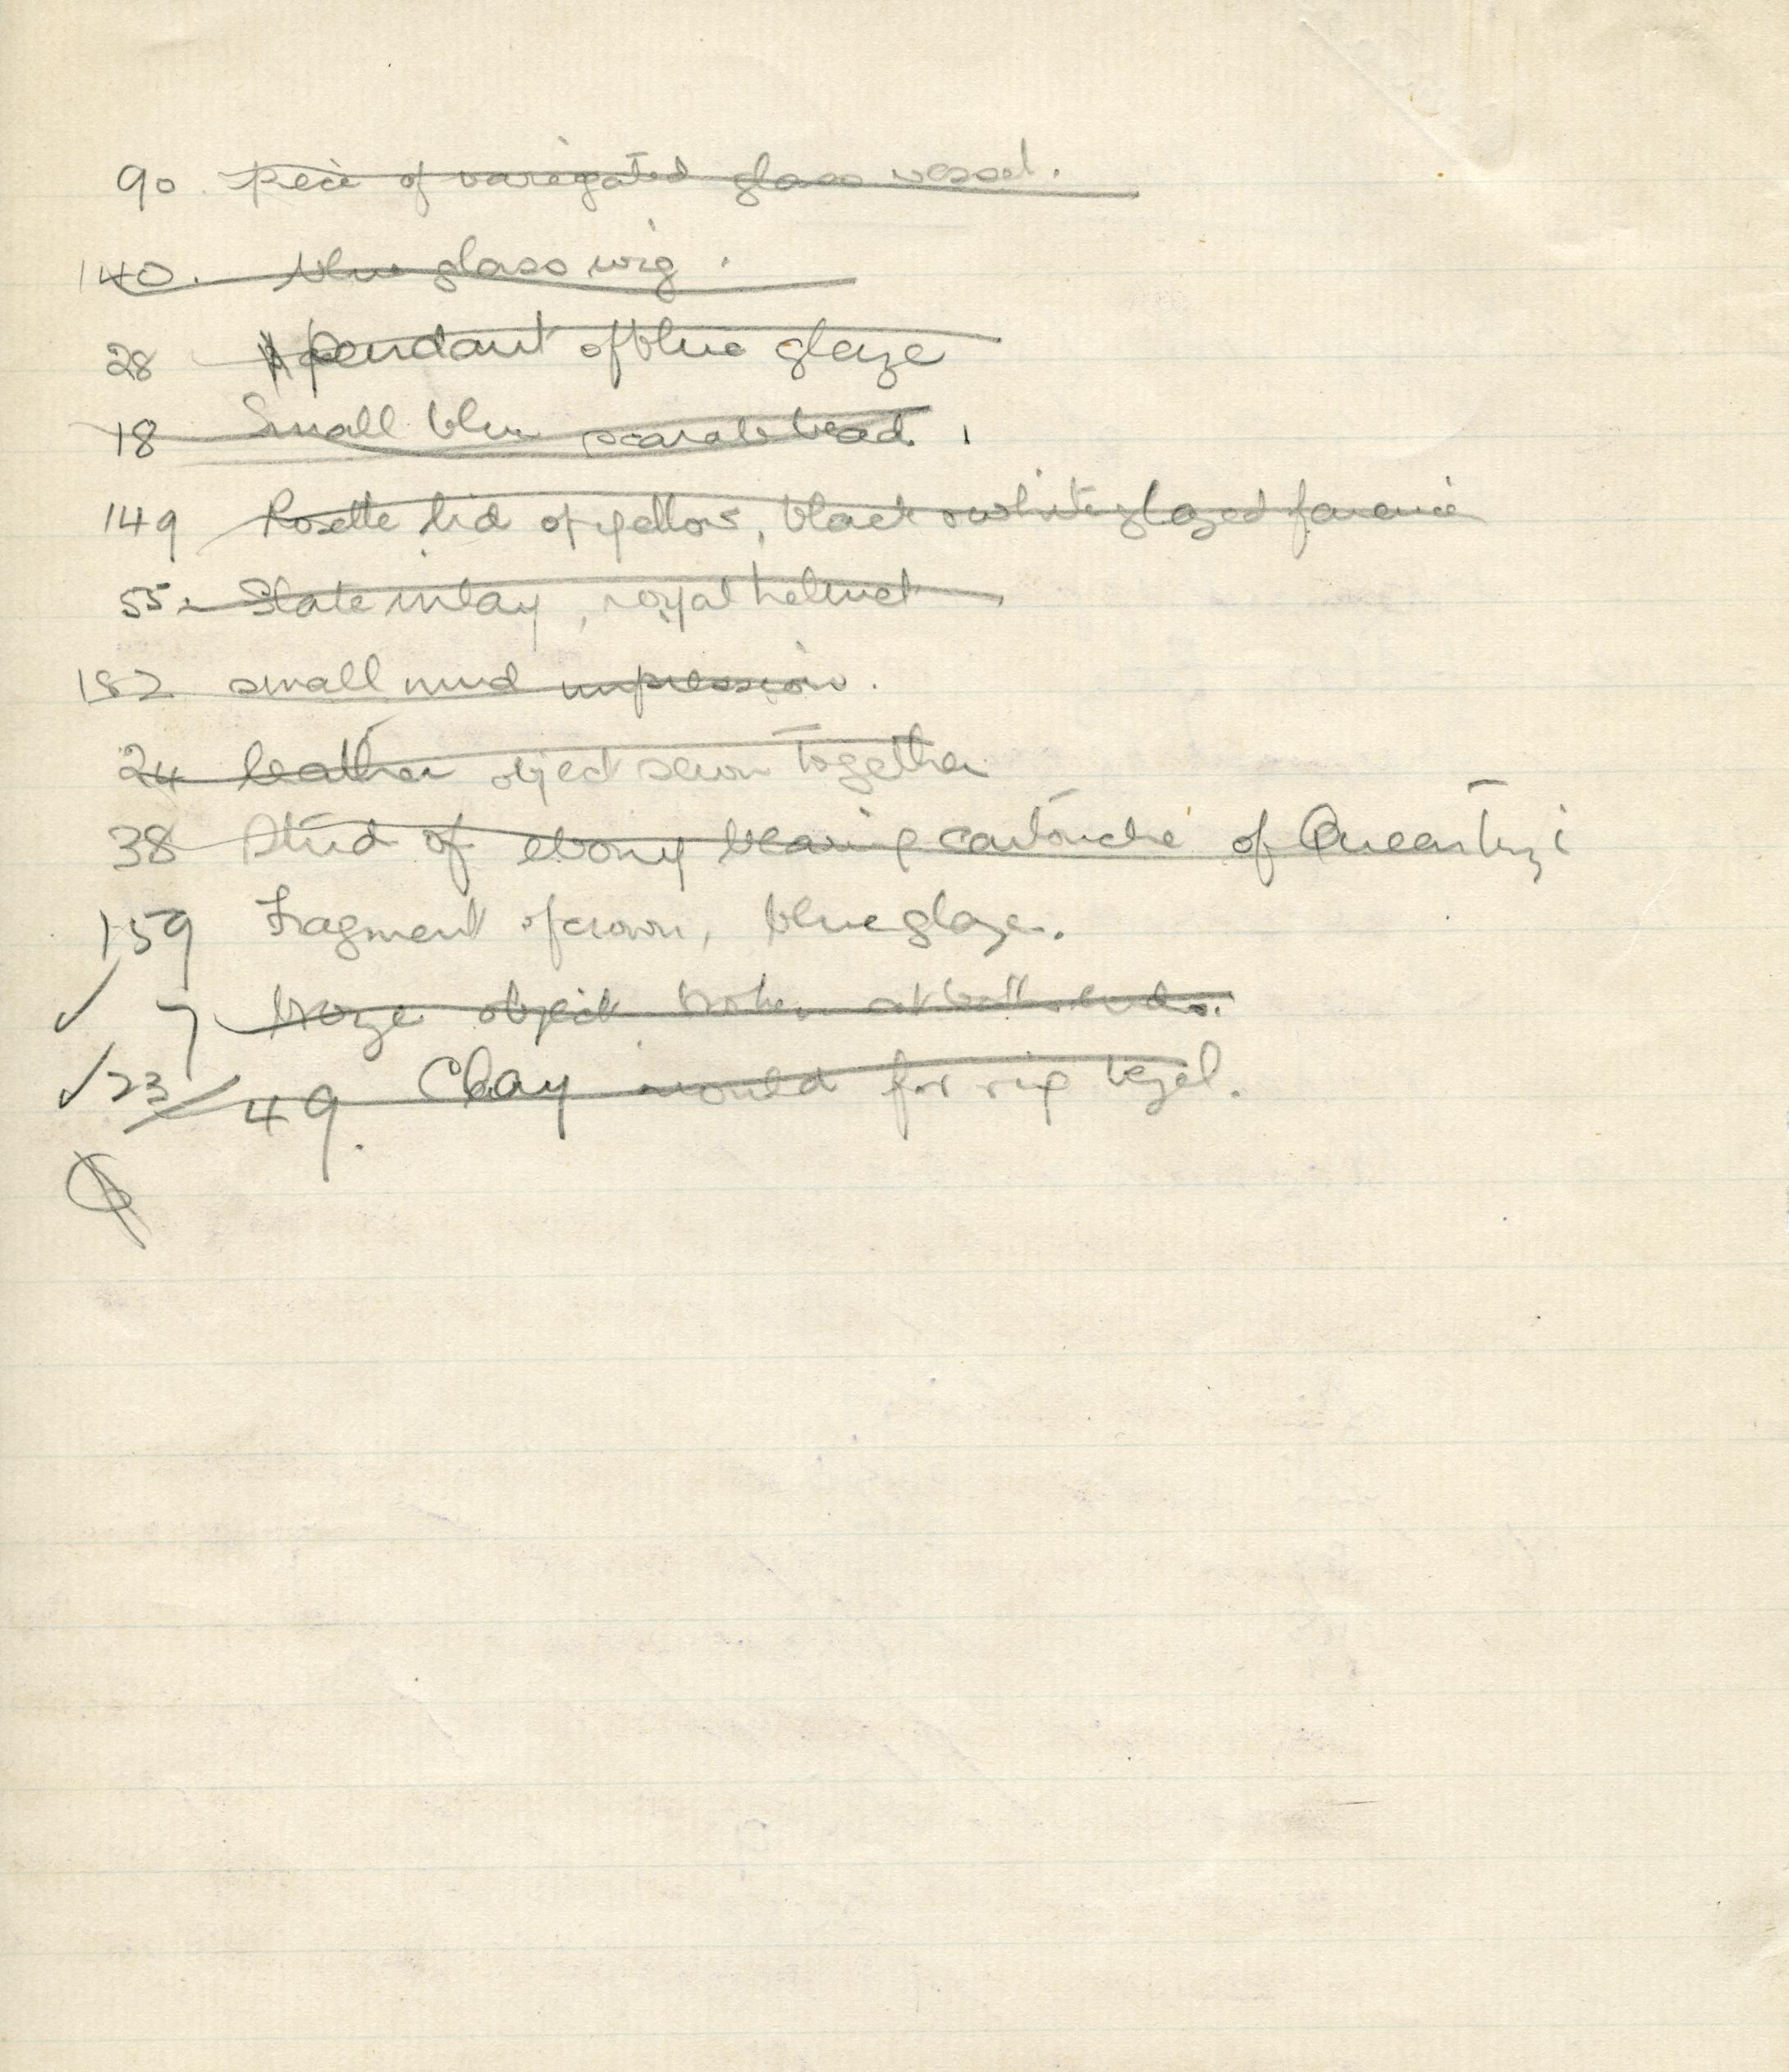 90. Piece of variegated glass vessel.
140. blue glass wig.
28 A pendant of blue glaze
18 Small blue scarab bead.
149 Rosette lid of yellow, black & white glazed faience
55. Slate inlay, royal helmet
182 small mud impression.
24 leather object sewn together
38 Stud of ebony bearing cartouche of Queen Tyi
159 Fragment of crown, blue glaze.
✓ 7 broze object broken at both ends.
✓ 23/49. Clay mould for ring bezel.